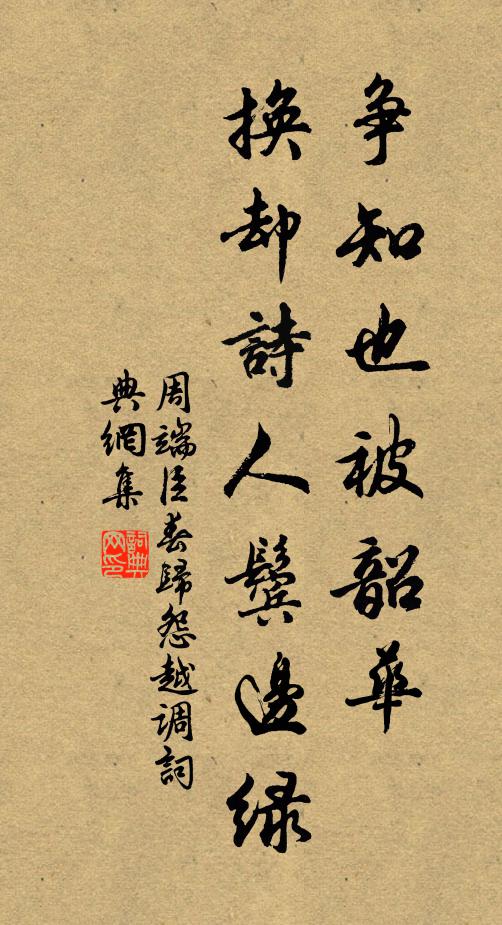 争知也被韶華
換却詩人鬢邊緑
周端臣春歸怨越调詞
典網集
詞典
网印